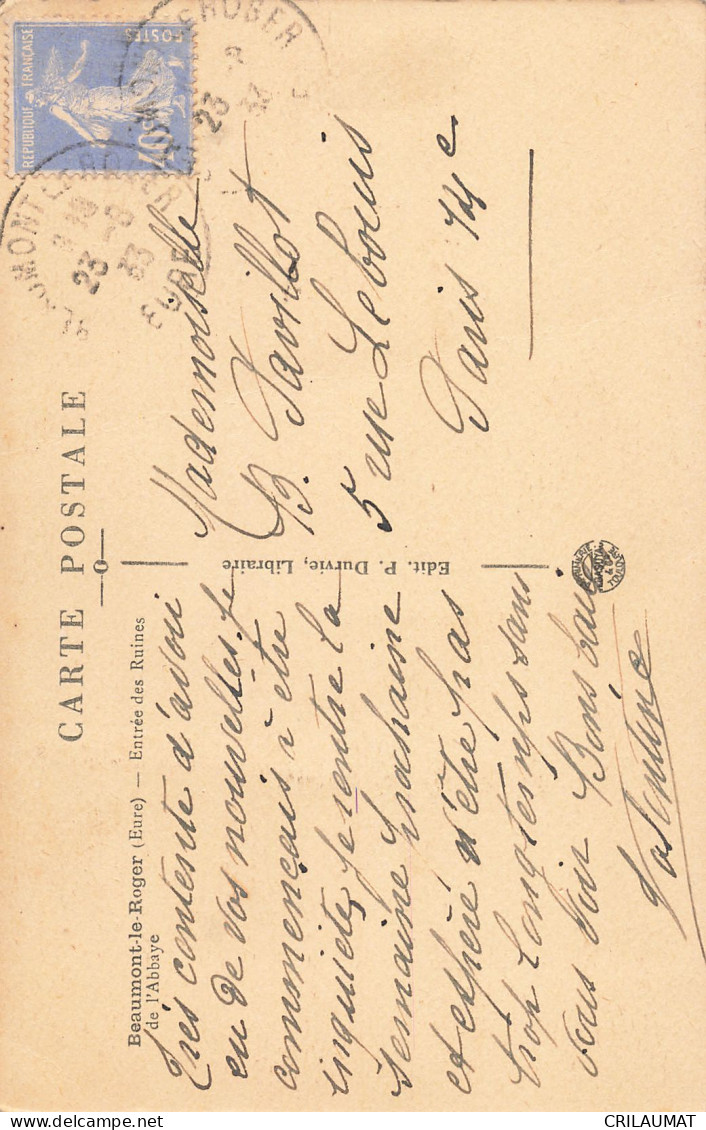 CARTE POSTALE
Beaumont-le-Roger (Eure) — Entrée des Ruines
de l'Abbaye
Très contente d'avoir
eu de vos nouvelles je
commençais à être
inquiète, je rentre la
semaine prochaine
et espère n'être pas
trop longtemps sans
vous voir Bons baisers
Valentine
Edit. P. Durvie, Libraire
REPUBLIQUE FRANÇAISE
POSTES
40c
BEAUMONT-LE-ROGER
23
33
EURE
Mademoiselle
B. Pavillot
5 rue Lebouis
Paris 14e
CRILAUMAT